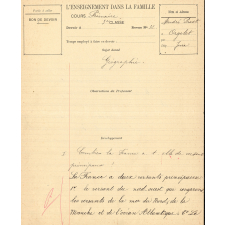 L'ENSEIGNEMENT DANS LA FAMILLE
COURS Primaire
CLASSE
BON DE DEVOIR
Nom et Adresse
André
Orgelet
Jura
Devoir N°
Temps employé à faire ce devoir
Sujet donné
Géographie
Observations du Professeur
Développement
Combien la France a-t-elle de versants
principaux ?
La France a deux versants principaux :
1° le versant du nord-ouest qui comprend
les versants de la mer du Nord, de la
Manche et de l'océan Atlantique ; 2° Le